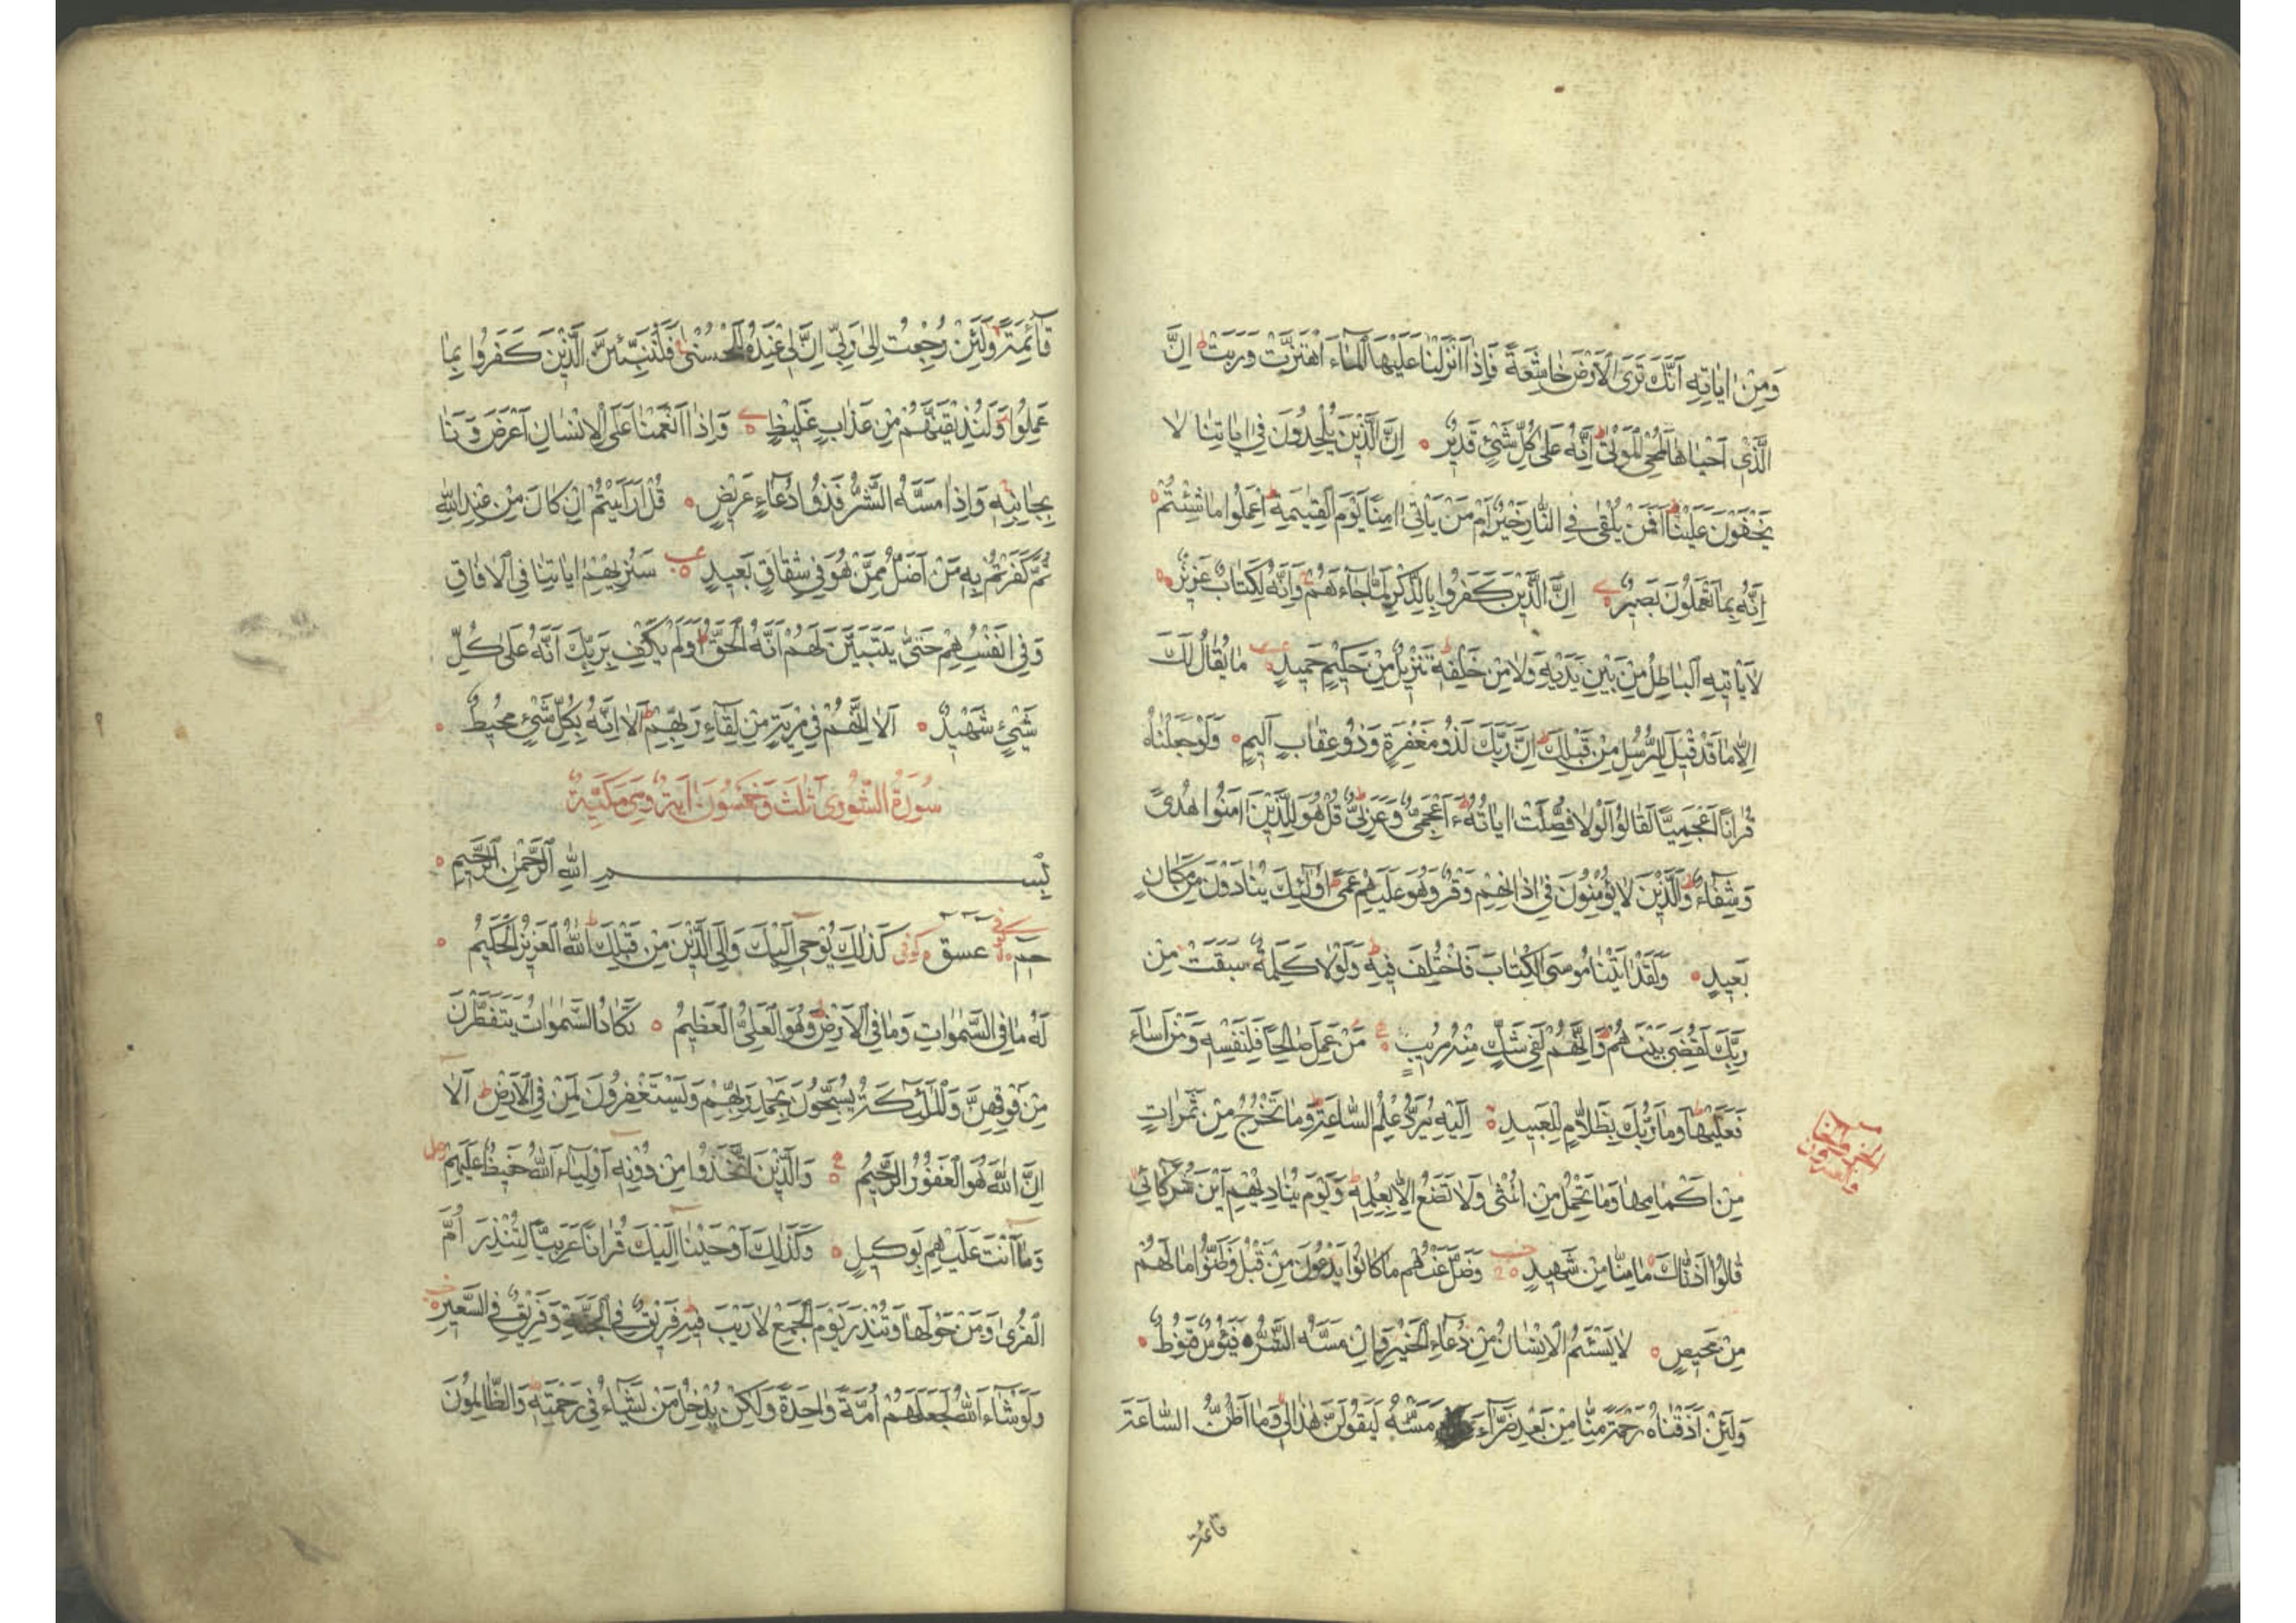 وَمِنْ اٰيَاتِهِ اَنَّكَ تَرَى الْاَرْضَ خَاشِعَةً فَاِذَا اَنْزَلْنَا عَلَيْهَا الْمَاءَ اهْتَزَّتْ وَرَبَتْ ط اِنَّ
الَّذِى اَحْيَاهَا لَمُحْىِ الْمَوْتٰى ط اِنَّهُ عَلٰى كُلِّ شَىْءٍ قَدِيْرٌ اِنَّ الَّذِيْنَ يُلْحِدُوْنَ فِى اٰيَاتِنَا لَا
يَخْفَوْنَ عَلَيْنَا ط اَفَمَنْ يُلْقٰى فِى النَّارِ خَيْرٌ اَمْ مَنْ يَأْتِى اٰمِنًا يَوْمَ الْقِيٰمَةِ ط اِعْمَلُوا مَا شِئْتُمْ
اِنَّهُ بِمَا تَعْمَلُوْنَ بَصِيْرٌ اِنَّ الَّذِيْنَ كَفَرُوا بِالذِّكْرِ لَمَّا جَاءَهُمْ وَاِنَّهُ لَكِتَابٌ عَزِيْزٌ
لَا يَأْتِيْهِ الْبَاطِلُ مِنْ بَيْنِ يَدَيْهِ وَلَا مِنْ خَلْفِهِ ط تَنْزِيْلٌ مِنْ حَكِيْمٍ حَمِيْدٍ مَا يُقَالُ لَكَ
اِلَّا مَا قَدْ قِيْلَ لِلرُّسُلِ مِنْ قَبْلِكَ ط اِنَّ رَبَّكَ لَذُو مَغْفِرَةٍ وَذُو عِقَابٍ اَلِيْمٍ وَلَوْ جَعَلْنَاهُ
قُرْاٰنًا اَعْجَمِيًّا لَقَالُوا لَوْلَا فُصِّلَتْ اٰيَاتُهُ ط ءَاَعْجَمِىٌّ وَعَرَبِىٌّ ط قُلْ هُوَ لِلَّذِيْنَ اٰمَنُوا هُدًى
وَشِفَاءٌ ط وَالَّذِيْنَ لَا يُؤْمِنُوْنَ فِى اٰذَانِهِمْ وَقْرٌ وَهُوَ عَلَيْهِمْ عَمًى ط اُولٰئِكَ يُنَادَوْنَ مِنْ مَكَانٍ
بَعِيْدٍ وَلَقَدْ اٰتَيْنَا مُوسَى الْكِتَابَ فَاخْتُلِفَ فِيْهِ ط وَلَوْلَا كَلِمَةٌ سَبَقَتْ مِنْ
رَبِّكَ لَقُضِىَ بَيْنَهُمْ ط وَاِنَّهُمْ لَفِى شَكٍّ مِنْهُ مُرِيْبٍ مَنْ عَمِلَ صَالِحًا فَلِنَفْسِهِ وَمَنْ اَسَاءَ
فَعَلَيْهَا ط وَمَا رَبُّكَ بِظَلَّامٍ لِلْعَبِيْدِ اِلَيْهِ يُرَدُّ عِلْمُ السَّاعَةِ ط وَمَا تَخْرُجُ مِنْ ثَمَرَاتٍ
مِنْ اَكْمَامِهَا وَمَا تَحْمِلُ مِنْ اُنْثٰى وَلَا تَضَعُ اِلَّا بِعِلْمِهِ ط وَيَوْمَ يُنَادِيْهِمْ اَيْنَ شُرَكَائِى
قَالُوا اٰذَنَّاكَ مَا مِنَّا مِنْ شَهِيْدٍ وَضَلَّ عَنْهُمْ مَا كَانُوا يَدْعُوْنَ مِنْ قَبْلُ وَظَنُّوا مَا لَهُمْ
مِنْ مَحِيْصٍ لَا يَسْئَمُ الْاِنْسَانُ مِنْ دُعَاءِ الْخَيْرِ وَاِنْ مَسَّهُ الشَّرُّ فَيَئُوسٌ قَنُوْطٌ
وَلَئِنْ اَذَقْنَاهُ رَحْمَةً مِنَّا مِنْ بَعْدِ ضَرَّاءَ مَسَّتْهُ لَيَقُوْلَنَّ هٰذَا لِى وَمَا اَظُنُّ السَّاعَةَ
قائمة
قَائِمَةً وَلَئِنْ رُجِعْتُ اِلٰى رَبِّى اِنَّ لِى عِنْدَهُ لَلْحُسْنٰى فَلَنُنَبِّئَنَّ الَّذِيْنَ كَفَرُوا بِمَا
عَمِلُوا وَلَنُذِيْقَنَّهُمْ مِنْ عَذَابٍ غَلِيْظٍ وَاِذَا اَنْعَمْنَا عَلَى الْاِنْسَانِ اَعْرَضَ وَنَاٰ
بِجَانِبِهِ وَاِذَا مَسَّهُ الشَّرُّ فَذُو دُعَاءٍ عَرِيْضٍ قُلْ اَرَاَيْتُمْ اِنْ كَانَ مِنْ عِنْدِ اللّٰهِ
ثُمَّ كَفَرْتُمْ بِهِ مَنْ اَضَلُّ مِمَّنْ هُوَ فِى شِقَاقٍ بَعِيْدٍ سَنُرِيْهِمْ اٰيَاتِنَا فِى الْاٰفَاقِ
وَفِى اَنْفُسِهِمْ حَتّٰى يَتَبَيَّنَ لَهُمْ اَنَّهُ الْحَقُّ ط اَوَلَمْ يَكْفِ بِرَبِّكَ اَنَّهُ عَلٰى كُلِّ
شَىْءٍ شَهِيْدٌ اَلَا اِنَّهُمْ فِى مِرْيَةٍ مِنْ لِقَاءِ رَبِّهِمْ ط اَلَا اِنَّهُ بِكُلِّ شَىْءٍ مُحِيْطٌ
سُوْرَةُ الشُّوْرٰى ثَلٰثَ وَخَمْسُوْنَ اٰيَةً وَهِىَ مَكِّيَّةٌ
بِسْمِ اللّٰهِ الرَّحْمٰنِ الرَّحِيْمِ
حٰمٓ عٓسٓقٓ كوفى كَذٰلِكَ يُوْحِى اِلَيْكَ وَاِلَى الَّذِيْنَ مِنْ قَبْلِكَ ط اللّٰهُ الْعَزِيْزُ الْحَكِيْمُ
لَهُ مَا فِى السَّمٰوَاتِ وَمَا فِى الْاَرْضِ ط وَهُوَ الْعَلِىُّ الْعَظِيْمُ تَكَادُ السَّمٰوَاتُ يَتَفَطَّرْنَ
مِنْ فَوْقِهِنَّ وَالْمَلٰئِكَةُ يُسَبِّحُوْنَ بِحَمْدِ رَبِّهِمْ وَيَسْتَغْفِرُوْنَ لِمَنْ فِى الْاَرْضِ ط اَلَا
اِنَّ اللّٰهَ هُوَ الْغَفُوْرُ الرَّحِيْمُ وَالَّذِيْنَ اتَّخَذُوا مِنْ دُوْنِهِ اَوْلِيَاءَ اللّٰهُ حَفِيْظٌ عَلَيْهِمْ
وَمَا اَنْتَ عَلَيْهِمْ بِوَكِيْلٍ وَكَذٰلِكَ اَوْحَيْنَا اِلَيْكَ قُرْاٰنًا عَرَبِيًّا لِتُنْذِرَ اُمَّ
الْقُرٰى وَمَنْ حَوْلَهَا وَتُنْذِرَ يَوْمَ الْجَمْعِ لَا رَيْبَ فِيْهِ فَرِيْقٌ فِى الْجَنَّةِ وَفَرِيْقٌ فِى السَّعِيْرِ
وَلَوْ شَاءَ اللّٰهُ لَجَعَلَهُمْ اُمَّةً وَاحِدَةً وَلٰكِنْ يُدْخِلُ مَنْ يَشَاءُ فِى رَحْمَتِهِ ط وَالظَّالِمُوْنَ